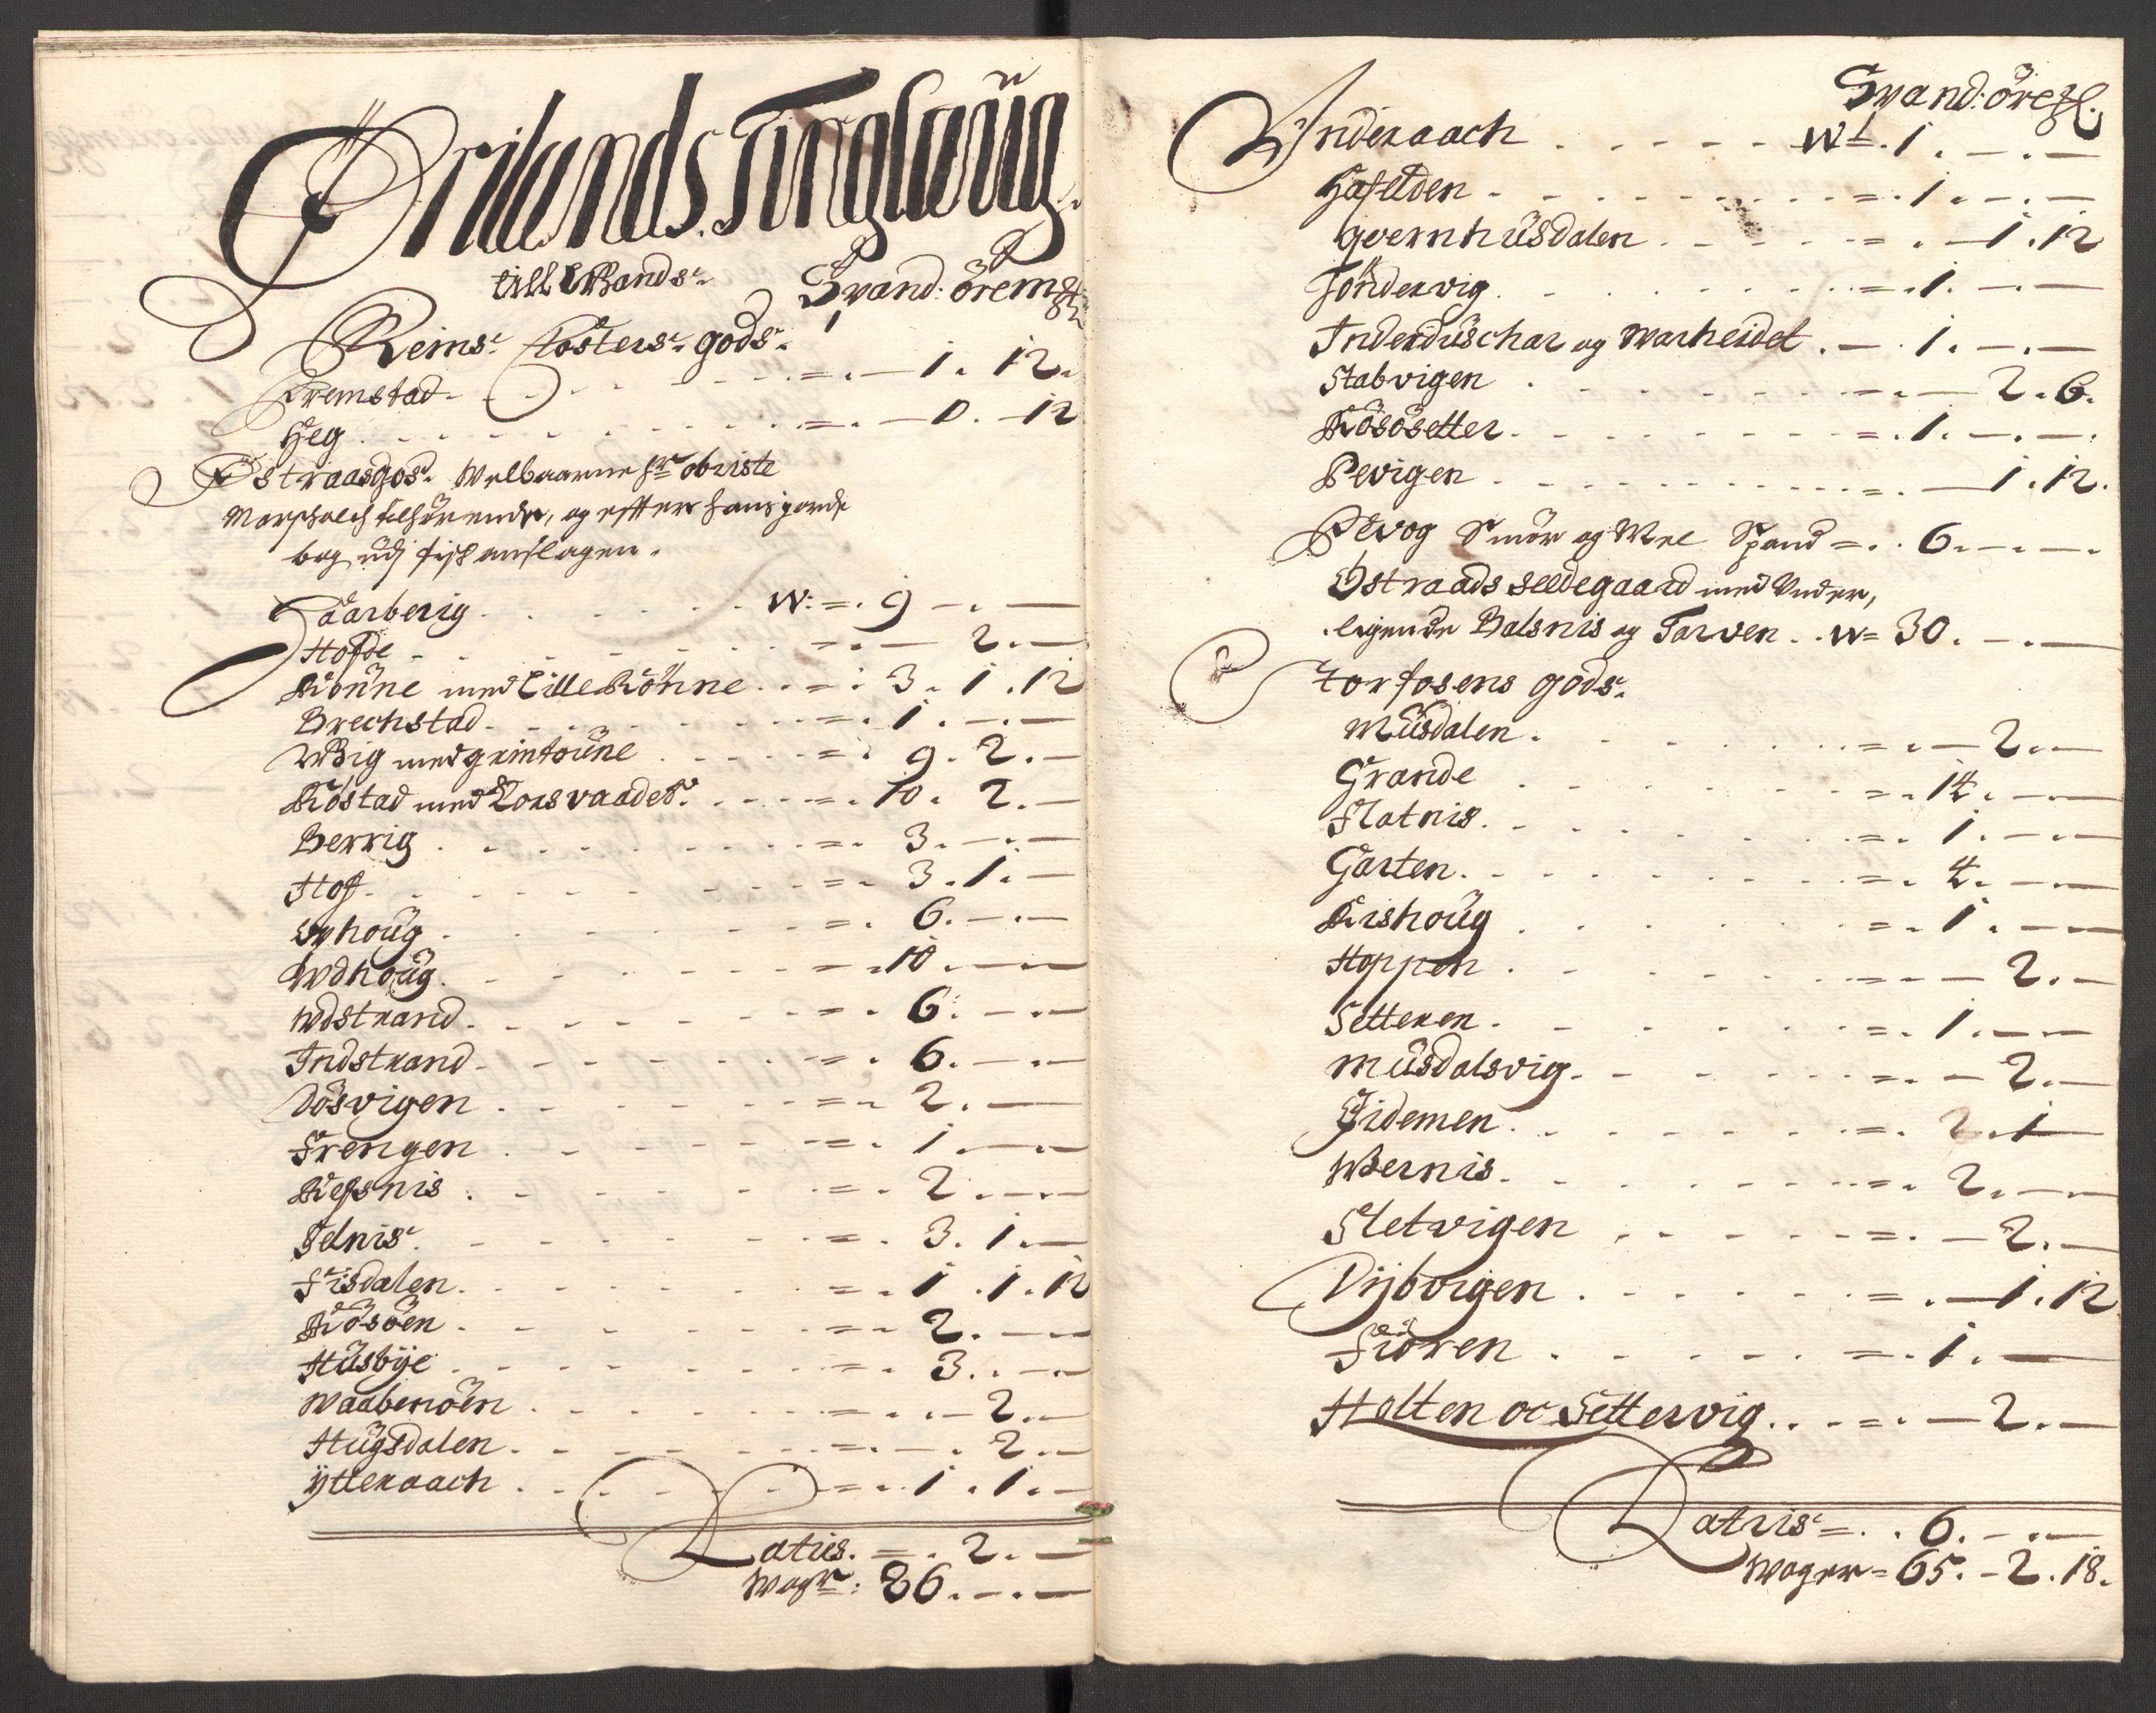 Ørilands Tinglaug.
till Lands. Spand: öre m
Reims Closters gods.
Fremstad - - - = . — 1 . 12.
Heg . - - - = . — 0 . — 12
Østraasgods. Welbaarne hr obriste
Marschalch tilhörende, og efter hans jorde
bog udj fisk anslagen.
Faarberig . . . W: = . 9 — . —
Hofde - - - = . — 2 . —
Rönne med Lille Rönne . . = : 3 . 1 . 12
Brechstad - - - = . 1 . — . —
Wig med grintoune . - - - = . 9 . 2 . —
Röstad med Lorsvaaded . - - - = . 10 . 2 . —
Berrig . - - - = . 3 . — . —
Hof . - - - = . 3 . 1 . —
Ophoug . - - - = . 6 . — . —
Wdhoug . - - - = . 10 . — —
Wdstrand . - - - = . 6 : — . —
Indstrand - - - - = . 6 . — . —
Dösvigen . - - - = . 2 . —
Frengen . - - - = . 1 . — . —
Refsnis . - - - = . 2 . — . —
Selnis . - - - = . 3 . 1 . —
Fisdalen . - - - = . 1 . 1 . 12
Rösöen . - - - = . 2 . — —
Husbÿe . - - - = . 3 . . — —
Waabenöen . - - - = . . — 2 . —
Hugsdalen . - - - = . — . 2 . . —
Ytteraach . - - - = . 1 . 1 . —
Latus . = . 2 . —
Wogr : 86 . — . —
Spand: öre
Inderaach . - - - W: 1 . — . —
Hafelden - - - = . 1 . — . —
Qvernhusdalen . - - - = . — 1 . 12
Söndervig . - - - = . 1 . — . —
Inderduschar og Warheidet . — . 1 . — . —
Stabvigen . - - - = . — 2 . 6 .
Rösösetter . - - - = . 1 . — . — .
Pevigen . - - - = . — 1 . 12 .
Smör og Mel Spand = . . 6 . — . — .
Østraads Sædegaard med Under,
ligende Balsnis og Tarven . . W= 30 . — . —
Torfosens gods.
Musdalen . - - - = . — 2 . —
Grande . - - - = . 14 . — —
Flatnis . - - - = . 1 . — . —
Garten . - - - = . 4 . — . —
Rishoug . - - - = . 1 . — —
Hoppen . - - - = — — 2 . —
Setteren . - - - = . 1 . — —
Musdalsvig - - - = . — 2 . —
Eidemen . - - - = . 2 . 1 —
Wernis . - - - = . 2 . — —
Sletvigen . - - - = . — 2 . —
Dÿbvigen . - - - = . — 1 . 12
Fiören . - - - = . 1 . —
Holten oc Settervig . . - = . — 2 . —
Latus = . . 6 . — . —
Woger = 65 . — 2 . 18 .